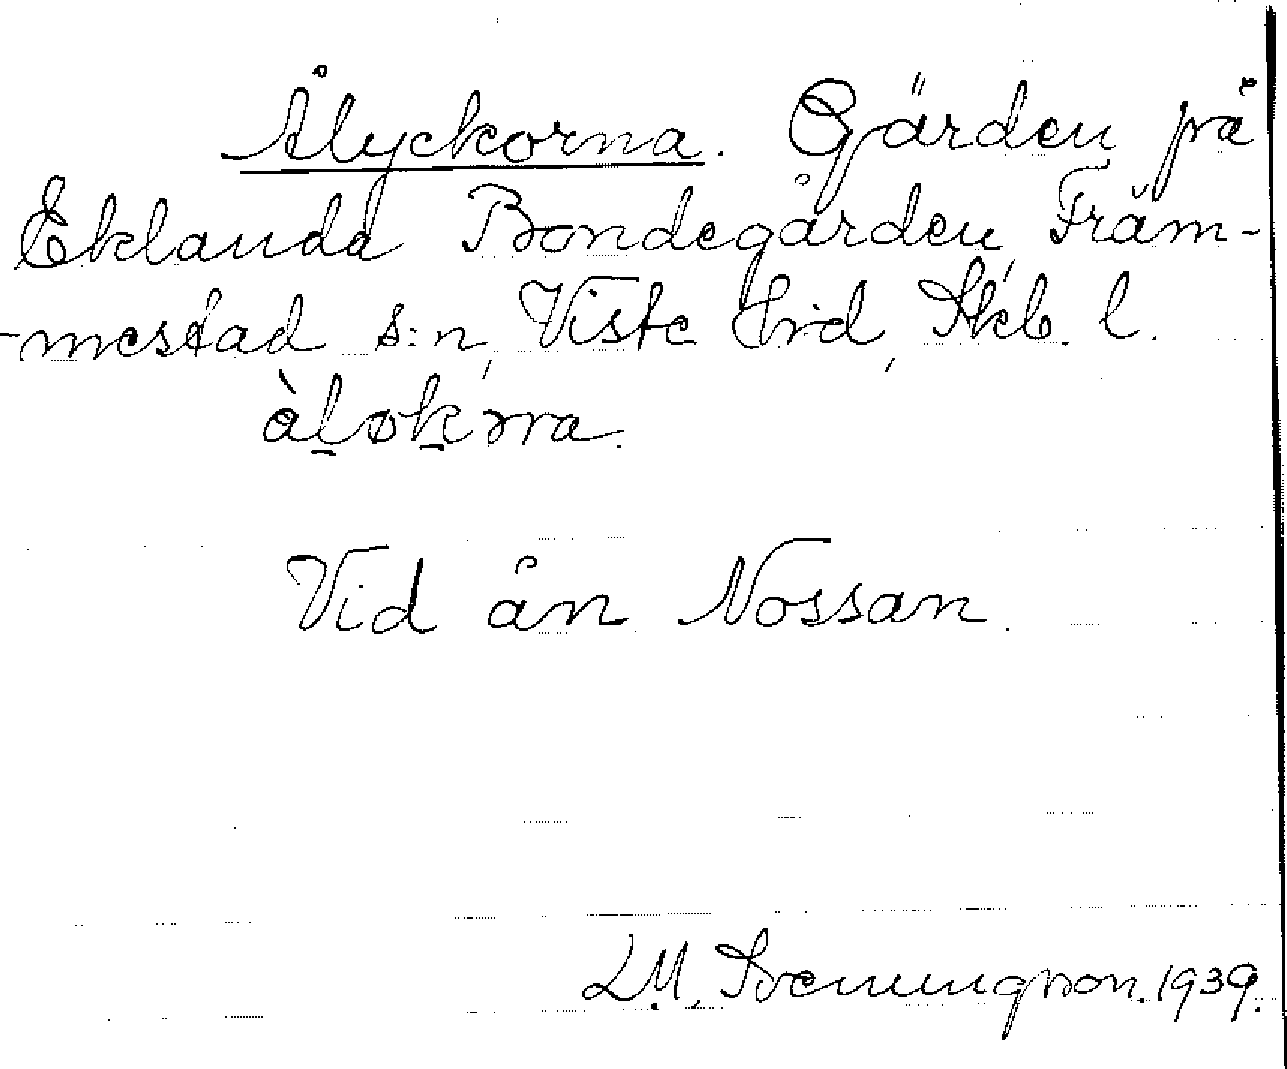 Ålyckorna. Gärden på
Eklanda Bondegården, Främ-
-mestad s:n, Viste hrd, Skb. l.
Vid ån Nossan.
L.M. Svenungsson. 1939.